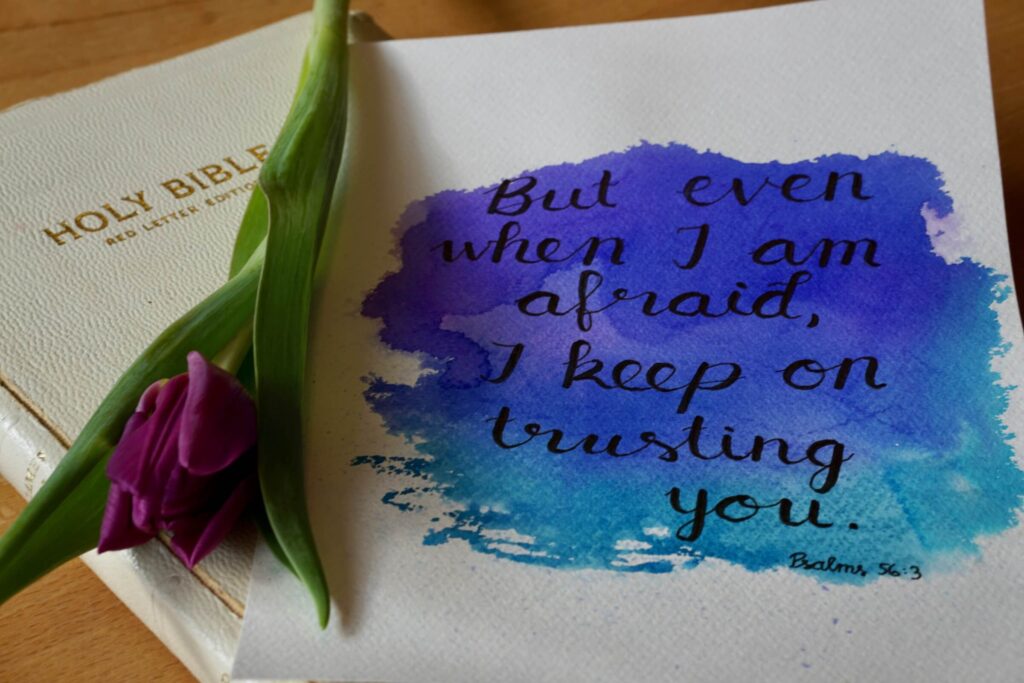 HOLY BIBLE
RED LETTER EDITION
But even
when I am
afraid,
I keep on
trusting
you.
Psalms 56:3